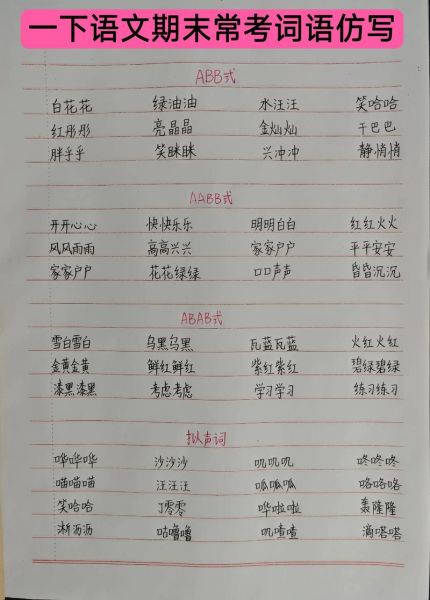 一下语文期末常考词语仿写
ABB式
白花花 绿油油 水汪汪 笑哈哈
红彤彤 亮晶晶 金灿灿 干巴巴
胖乎乎 笑眯眯 兴冲冲 静悄悄
AABB式
开开心心 快快乐乐 明明白白 红红火火
风风雨雨 高高兴兴 家家户户 平平安安
家家户户 花花绿绿 口口声声 昏昏沉沉
ABAB式
雪白雪白 乌黑乌黑 瓦蓝瓦蓝 火红火红
金黄金黄 鲜红鲜红 紫红紫红 碧绿碧绿
漆黑漆黑 考虑考虑 学习学习 练习练习
拟声词
哗哗哗 沙沙沙 叽叽叽 咚咚咚
喵喵喵 汪汪汪 呱呱呱 咯咯咯
笑哈哈 丁零零 哗啦啦 轰隆隆
淅沥沥 咕噜噜 叽喳喳 滴嗒嗒